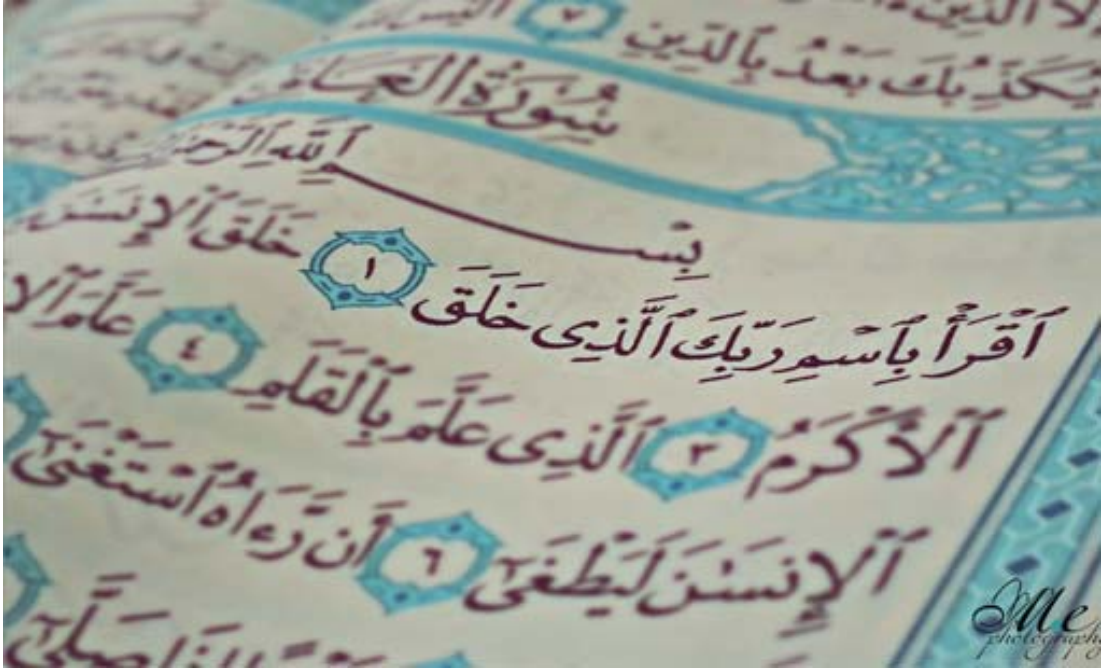 إلا الذين
يكذبك بعد بالدين ٧ أليس
سورة العلق
بسم الله الرحمن
ٱقْرَأْ بِٱسْمِ رَبِّكَ ٱلَّذِى خَلَقَ ١ خَلَقَ ٱلْإِنسَٰنَ
ٱلْأَكْرَمُ ٣ ٱلَّذِى عَلَّمَ بِٱلْقَلَمِ ٤ عَلَّمَ ٱلْإ
ٱلْإِنسَٰنَ لَيَطْغَىٰٓ ٦ أَن رَّءَاهُ ٱسْتَغْنَىٰٓ
صَلَّىٰٓ
Me
photography